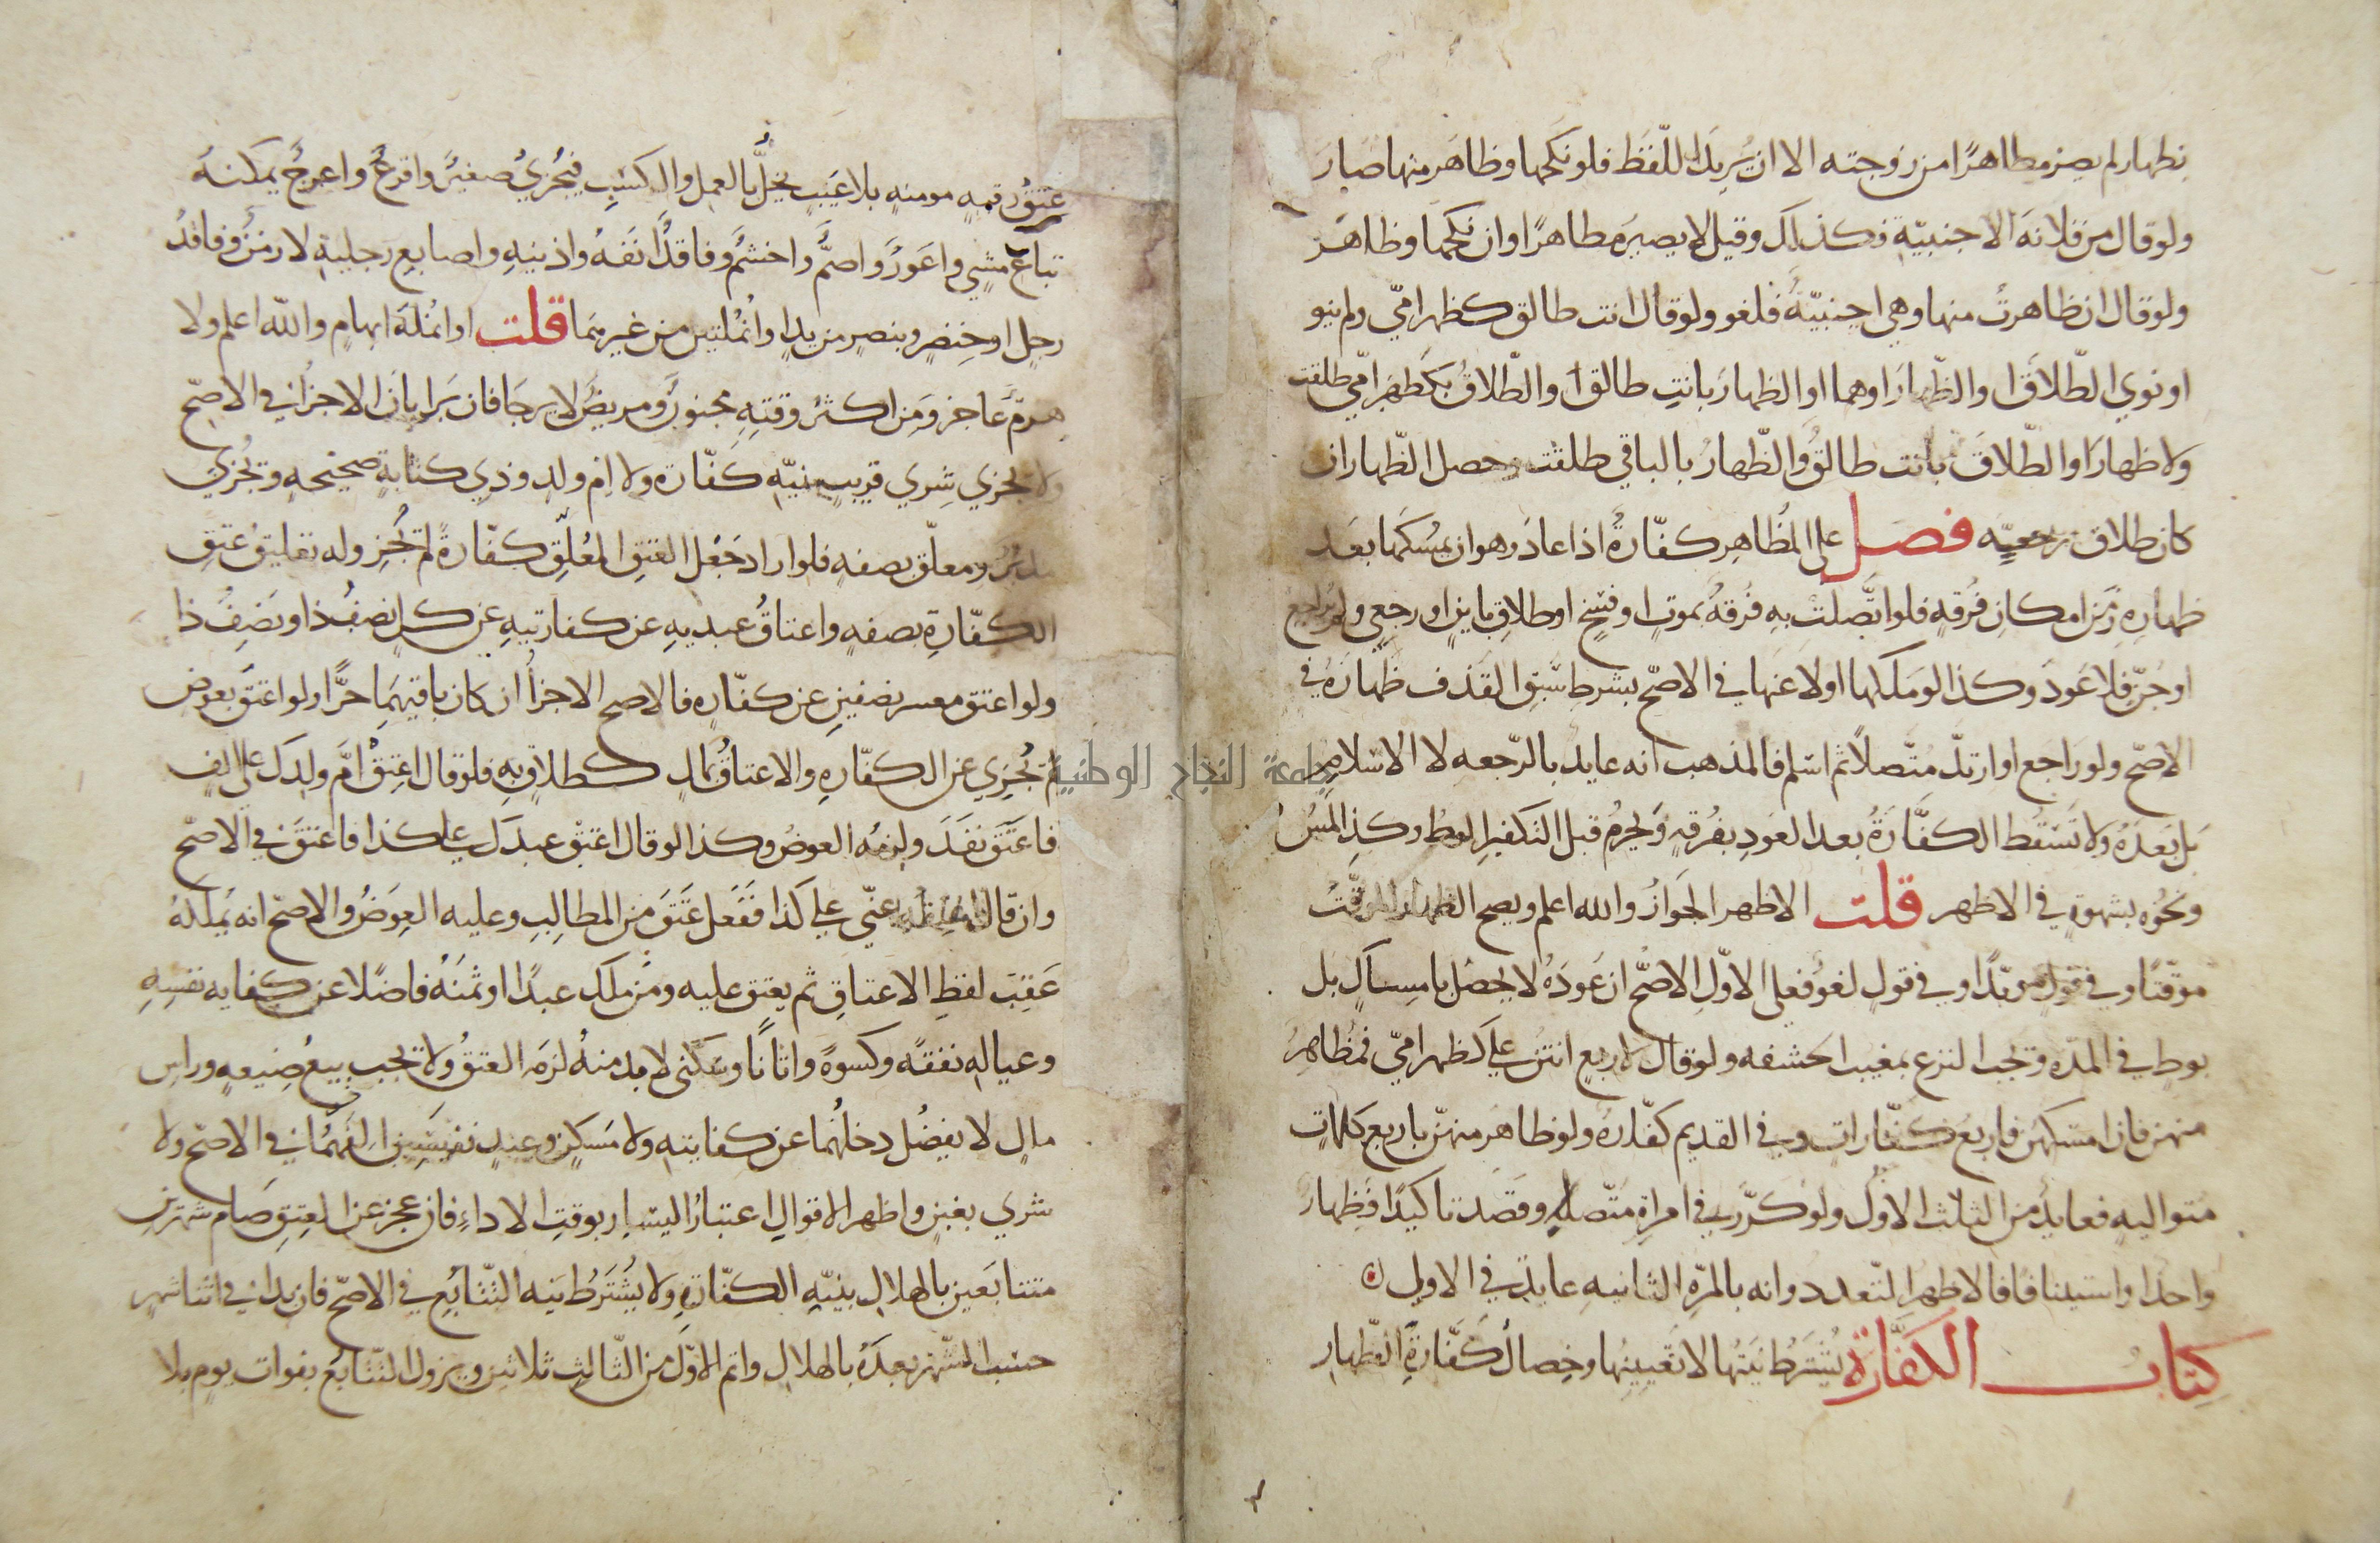 بظهار لم يصر مظاهرًا من زوجته الا ان يريدَ اللّفظَ فلو نكحها وظاهَر منها صارَ
ولو قال من فلانة الاجنبيّة فكذلك وقيل لا يصير مظاهرًا وان نكحها وظاهَر
ولو قال ان ظاهرتُ منها وهي اجنبيّةٌ فلغو ولو قال انت طالق كظهر امّي ولم ينو
او نوي الطّلاقَ او الظّهارَ او هما او الظهارَ بانتِ طالقٌ والطّلاقُ بكظهر امّي طلقت
ولا ظهارَ او الطّلاقَ بانت طالقٌ والظّهارُ بالباقي طلقت وحصل الظّهار ان
كان طلاق رجعيّه فصل على المُظاهِر كفّارةٌ اذا عادَ وهو ان يمسكها بعد
ظهاره زمَن امكانِ فُرقهٍ فلو اتّصلتْ بهِ فُرقةٌ بموتٍ او فسْخٍ او طلاقٍ باينٍ او رجعيٍ ولم يُراجع
او جُنّ فلا عَودَ وكذا لو مَلكها او لاعَنها في الاصحّ بشرط سَبْقِ القذف ظهارَهُ في
الاصحّ ولو راجع او ارتدّ متّصلًا ثم اسلم فالمذهب انه عايد بالرّجعه لا الاسلام
جامعة النجاح الوطنية
بَل بَعدَهُ ولا تَسقُط الكفّارَةُ بعد العَودِ بفُرقهٍ ويَحرُمُ قبل التكفير الوطُ وكذا المَسُ
ونحوُه بشهوةٍ في الاظهر قلت الاظهر الجَوازُ والله اعلم ويصح الظهار الموقّتُ
موَقّتًا وفي قولٍ مؤبّدًا وفي قولٍ لغوٌ فعلى الاوّلِ الاصَحُّ ان عَودَهُ لا يحصُل بامساكٍ بل
بوطٍ في المدّه وتجب النزع بمغيب الحشفه ولو قال لاربع انتنّ عليّ كظهر امّي فمُظاهِرٌ
منهن فان امسَكهنّ فاربعُ كفّاراتٍ وفي القديم كفّارةٌ ولو ظاهَر منهنّ باربع كلماتٍ
متواليهٍ فعايدٌ من الثلاث الاُوَلِ ولو كرّر في امراةٍ متّصلا وقصَد تاكيدًا فظهارٌ
واحدٌ او استينافًا فالاظهر التّعدد وانه بالمرّه الثانيه عايدٌ في الاولى
كتاب الكفّارة يُشترَطُ نيّتُها لا تَعيينُها وخِصالُ كَفّارةِ الظّهار
عتقُ رقبهٍ مومنهٍ بلا عَيْبٍ يخلّ بالعمل والكسْبِ فيُجزي صغيرٌ واقرعُ واعرجُ يمكنهُ
تباعُ مشيٍ واعَورُ واصمُّ واخشمُ وفاقدُ انفَهُ واذنيهِ واصابع رجليهِ لا زَمِنٌ وفاقدُ
رجلٍ او خِنصِرٍ وبنصرٍ من يدٍ او انمُلتين من غيرهما قلت او انمُلَة ابهامٍ والله اعلم ولا
هرمٌ عاجز ومَن اكثرُ وقتِهِ مجنونٌ ومريضٌ لا يرجَا فان بَرا بانَ الاجزاُ في الاصحّ
ولا يجزي شِري قريبٍ بنيّة كفّارة ولا امّ ولدٍ وذي كتابةٍ صحيحهٍ وتُجزي
مدبّرٌ ومعلّق بصفهٍ فلو اراد جَعْل العتقِ المعُلّق كفّارةً لم تُجزِ وله تعليقُ عتقِ
الكفّارةِ بصفهٍ واعتاقُ عبديهِ عن كفارتيهِ عن كلٍ نصفُ ذا ونصْفُ ذا
ولو اعتق معسر نصفينِ عن كفّاره فالاصح الاجزاُ ان كان باقيهمَا حرًّا ولو اعتقَ بعوضٍ
لم تُجْزِي عن الكفّارهِ والاعتاقُ بمالٍ كطلاقٍ بهِ فلو قال اعتِقْ امَّ ولدكَ على الفٍ
فاعتَقَ نفَذَ ولزمُه العوضُ وكذا لو قال اعتِقْ عبدَكَ على كذا فاعتقَ في الاصحّ
وان قال اعتقه عنّي على كذا ففَعل عَتَقَ من المطالِبِ وعليه العِوَضُ والاصحّ انه يملكُهُ
عَقِبَ لفظِ الاعتاقِ ثم يعتق عليه ومَن ملكَ عبدًا او ثمنَهُ فاضلًا عن كفايه نفسِهِ
وعيالهِ نفقةً وكسوةً واثاثًا وسكنَى لا بدّ منهُ لزمَه العتقُ ولا تجب بيعُ ضيعهٍ وراس
مالٍ لا يفضُل دخلُهُما عن كفايتهِ ولا مَسكنٍ وعبدٍ نفيسَينِ الِفهُمَا في الاصحّ ولا
شري بغبنٍ واظهر الاقوال اعتبارُ اليسَار بوقتِ الاداءِ فان عجز عن العتِقِ صَام شهرين
متتابعَين بالهلال بنيّةِ الكفّارةِ ولا يُشتَرَطُ نيّه التّتَابُعِ في الاصحّ فان بدا في اثنا شهرٍ
حسب الشّهر بعدَهُ بالهلال واتم الاوّلَ من الثّالثِ ثلاثين ويزول التّتابعُ بفوات يومٍ بلا